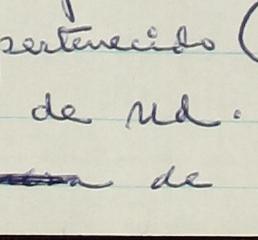 pertenecido (
de Ud.
de